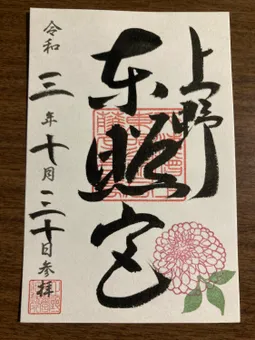 上野
東照宮
令和三年十月三十日参拝